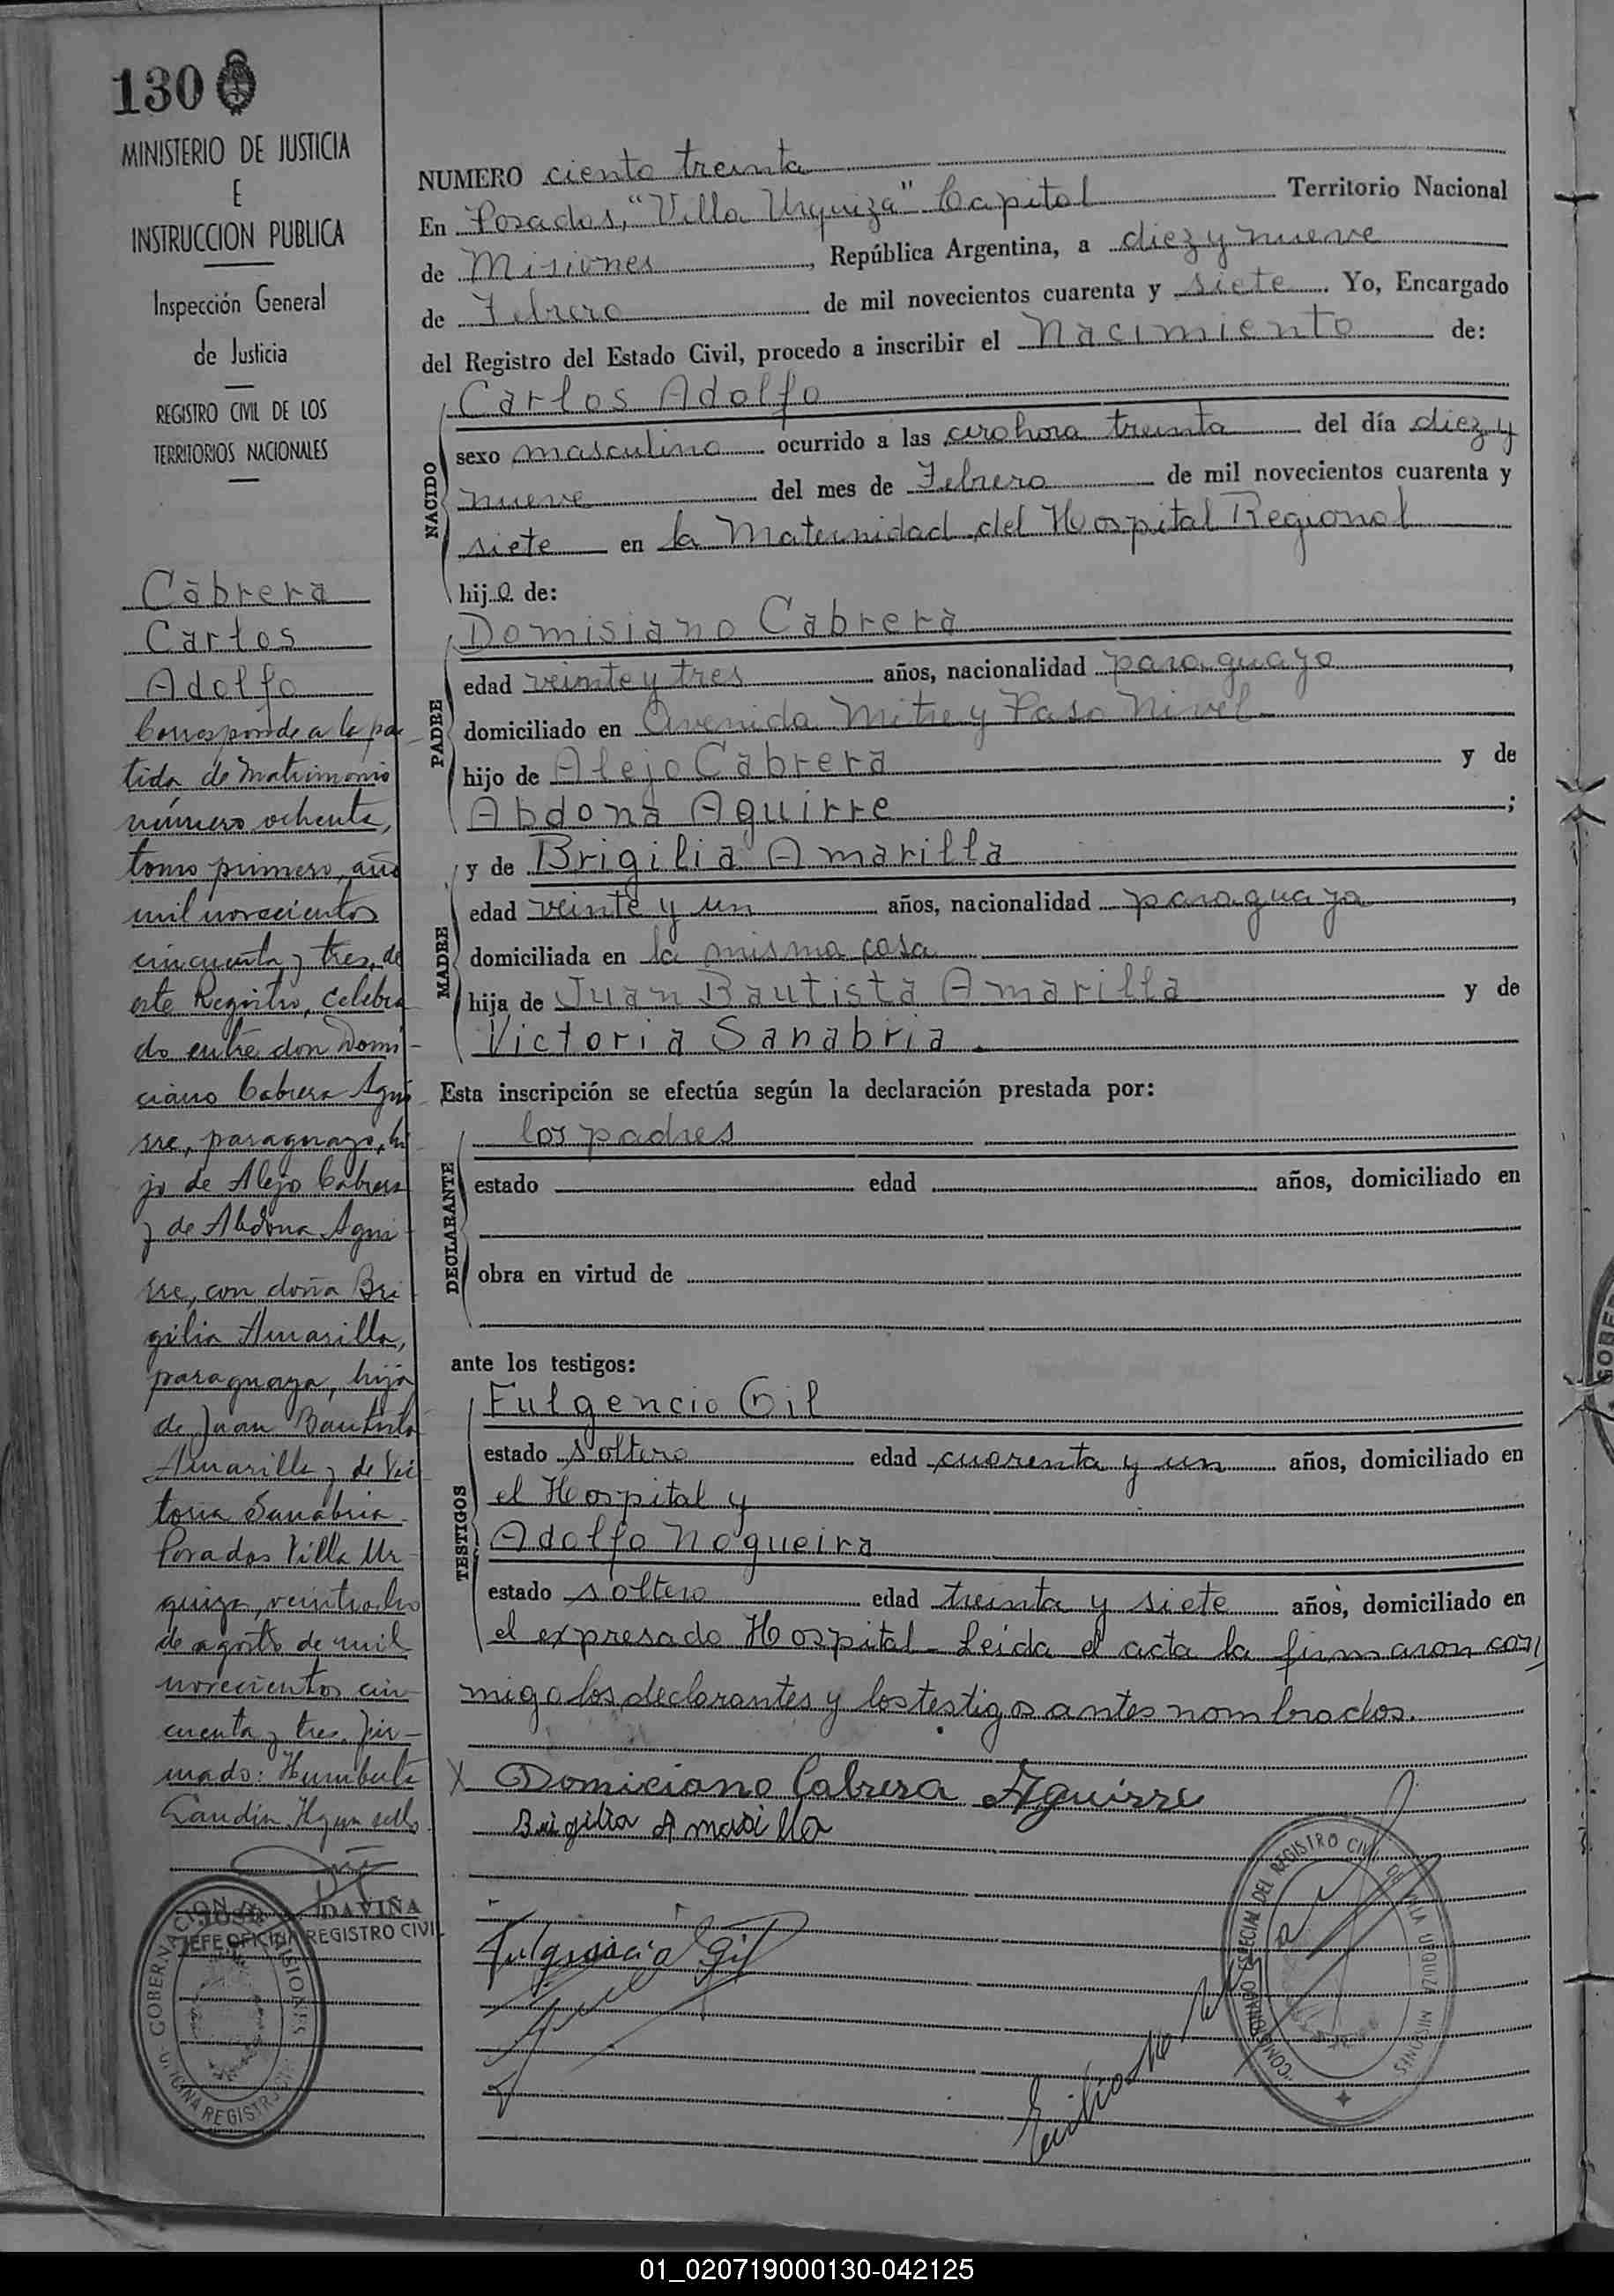 130
MINISTERIO DE JUSTICIA
E
INSTRUCCION PUBLICA
Inspección General
de Justicia
REGISTRO CIVIL DE LOS
TERRITORIOS NACIONALES
Cabrera
Carlos
Adolfo
Corresponde a la par
tida de matrimonio
número ochenta,
tomo primero, año
mil novecientos
cincuenta y tres, de
este Registro, celebra
do entre don Domi-
ciano Cabrera Agui
rre, paraguayo, hi
jo de Alejo Cabrera
y de Abdona Agui-
rre, con doña Bri
gilia Amarilla,
paraguaya, hija
de Juan Bautista
Amarilla y de Vic
toria Sanabria.
Posadas Villa Ur
quiza, veintiocho
de agosto de mil
novecientos cin-
cuenta y tres. Fir-
mado: Humberto
Hay un sello
DAVIÑA
JEFE OFICINA REGISTRO CIVIL
GOBERNACION DE MISIONES
OFICINA REGISTRO CIVIL
NUMERO ciento treinta
En Posadas, "Villa Urquiza" Capital Territorio Nacional
de Misiones, República Argentina, a diez y nueve
de Febrero de mil novecientos cuarenta y siete. Yo, Encargado
del Registro del Estado Civil, procedo a inscribir el Nacimiento de:
NACIDO
Carlos Adolfo
sexo masculino ocurrido a las cerohora treinta del día diez y
nueve del mes de Febrero de mil novecientos cuarenta y
siete en la Maternidad del Hospital Regional
hijo de:
PADRE
Domisiano Cabrera
edad veinte y tres años, nacionalidad paraguayo,
domiciliado en Avenida Mitre y Paso Nivel
hijo de Alejo Cabrera y de
Abdona Aguirre;
MADRE
y de Brigilia Amarilla
edad veinte y un años, nacionalidad paraguaya,
domiciliada en la misma casa
hija de Juan Bautista Amarilla y de
Victoria Sanabria.
Esta inscripción se efectúa según la declaración prestada por:
DECLARANTE
los padres
estado edad años, domiciliado en
obra en virtud de
ante los testigos:
TESTIGOS
Fulgencio Gil
estado soltero edad cuarenta y un años, domiciliado en
el Hospital y
Adolfo Nogueira
estado soltero edad treinta y siete años, domiciliado en
el expresado Hospital - Leida el acta la firmaron con
migo los declarantes y los testigos antes nombrados.
X Domiciano Cabrera Aguirre
Brigilia Amarilla
Fulgencio Gil
COMISIONADO ESPECIAL DEL REGISTRO CIVIL DE VILLA URQUIZA MISIONES
01_020719000130-042125